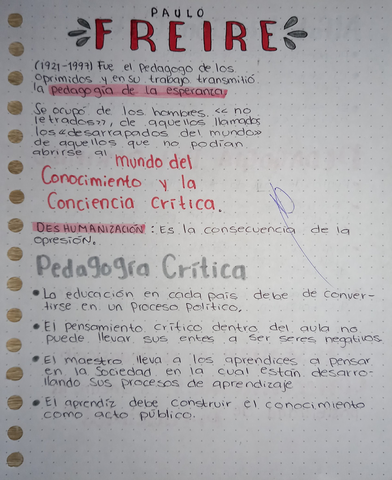 PAULO
FREIRE
(1921-1997) Fue el pedagogo de los
oprimidos y en su trabajo transmitió
la pedagogía de la esperanza.
Se ocupó de los hombres «no
letrados», de aquellos llamados
los «desarrapados del mundo»
de aquellos que no podían
abrirse al mundo del
Conocimiento y la
Conciencia Crítica.
DESHUMANIZACIÓN: Es la consecuencia de la
opresión.
Pedagogía Crítica
• La educación en cada país debe de conver-
tirse en un proceso político.
• El pensamiento crítico dentro del aula no
puede llevar sus entes a ser seres negativos
• El maestro lleva a los aprendices a pensar
en la Sociedad en la cual están desarro-
llando sus procesos de aprendizaje
• El aprendiz debe construir el conocimiento
como acto público.